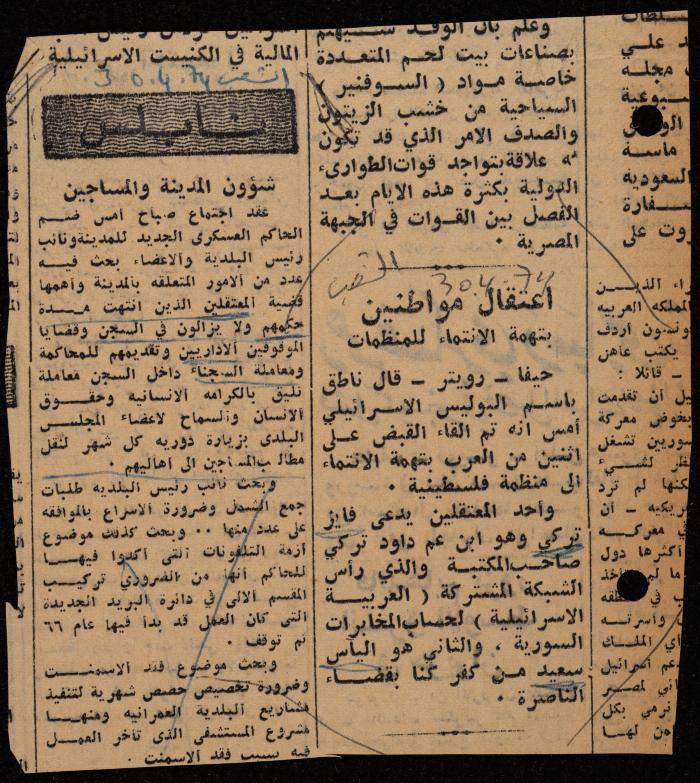 وعلم بان الوفد سيهتم
بصناعات بيت لحم المتعددة
خاصة مواد ( السوفنير )
السياحية من خشب الزيتون
والصدف الامر الذي قد تكون
له علاقة بتواجد قوات الطوارىء
الدولية بكثرة هذه الايام بعد
الفصل بين القوات في الجبهة
المصرية .
الشعب 30.4.74
اعتقال مواطنين
بتهمة الانتماء للمنظمات
حيفا – رويتر – قال ناطق
باسم البوليس الاسرائيلي
أمس انه تم القاء القبض على
اثنين من العرب بتهمة الانتماء
الى منظمة فلسطينية .
وأحد المعتقلين يدعى فايز
تركي وهو ابن عم داود تركي
صاحب المكتبة والذي رأس
الشبكة المشتركة ( العربية
الاسرائيلية ) لحساب المخابرات
السورية ، والثاني هو الياس
سعيد من كفر كنا بقضاء
الناصرة .
المالية في الكنيست الاسرائيلية
الشعب 30.4.74
نابلس
شؤون المدينة والمساجين
عقد اجتماع صباح امس ضم
الحاكم العسكرى الجديد للمدينة ونائب
رئيس البلدية والاعضاء بحث فيه
عدد من الامور المتعلقه بالمدينة وأهمها
قضية المعتقلين الذين انتهت مدة
حكمهم ولا يزالون في السجن وقضايا
الموقوفين الاداريين وتقديمهم للمحاكمة
ومعاملة السجناء داخل السجن معاملة
تليق بالكرامه الانسانيه وحقوق
الانسان والسماح لاعضاء المجلس
البلدى بزيارة دوريه كل شهر لنقل
مطالب المساجين الى أهاليهم .
وبحث نائب رئيس البلديه طلبات
جمع الشمل وضرورة الاسراع بالموافقه
على عدد منها .. وبحث كذلك موضوع
أزمة التلفونات التى أكدوا فيها
للحاكم أنها من الضرورى تركيب
المقسم الالى في دائرة البريد الجديدة
التى كان العمل قد بدأ فيها عام ٦٦
ثم توقف .
وبحث موضوع فقد الاسمنت
وضرورة تخصيص حصص شهرية لتنفيذ
مشاريع البلدية العمرانيه ومنها
مشروع المستشفى الذى تأخر العمل
فيه بسبب فقد الاسمنت .
على
مجله
ماسة
السعوديه
سفارة
على
المملكه العربيه
يكتب عاهل
– قائلا :
أن تقدمت
يخوض معركة
سوريين تشغل
لم ترد
– أن
معركه
أكثرها دول
وأسرته
الملك
اسرائيل
بكل
من لها